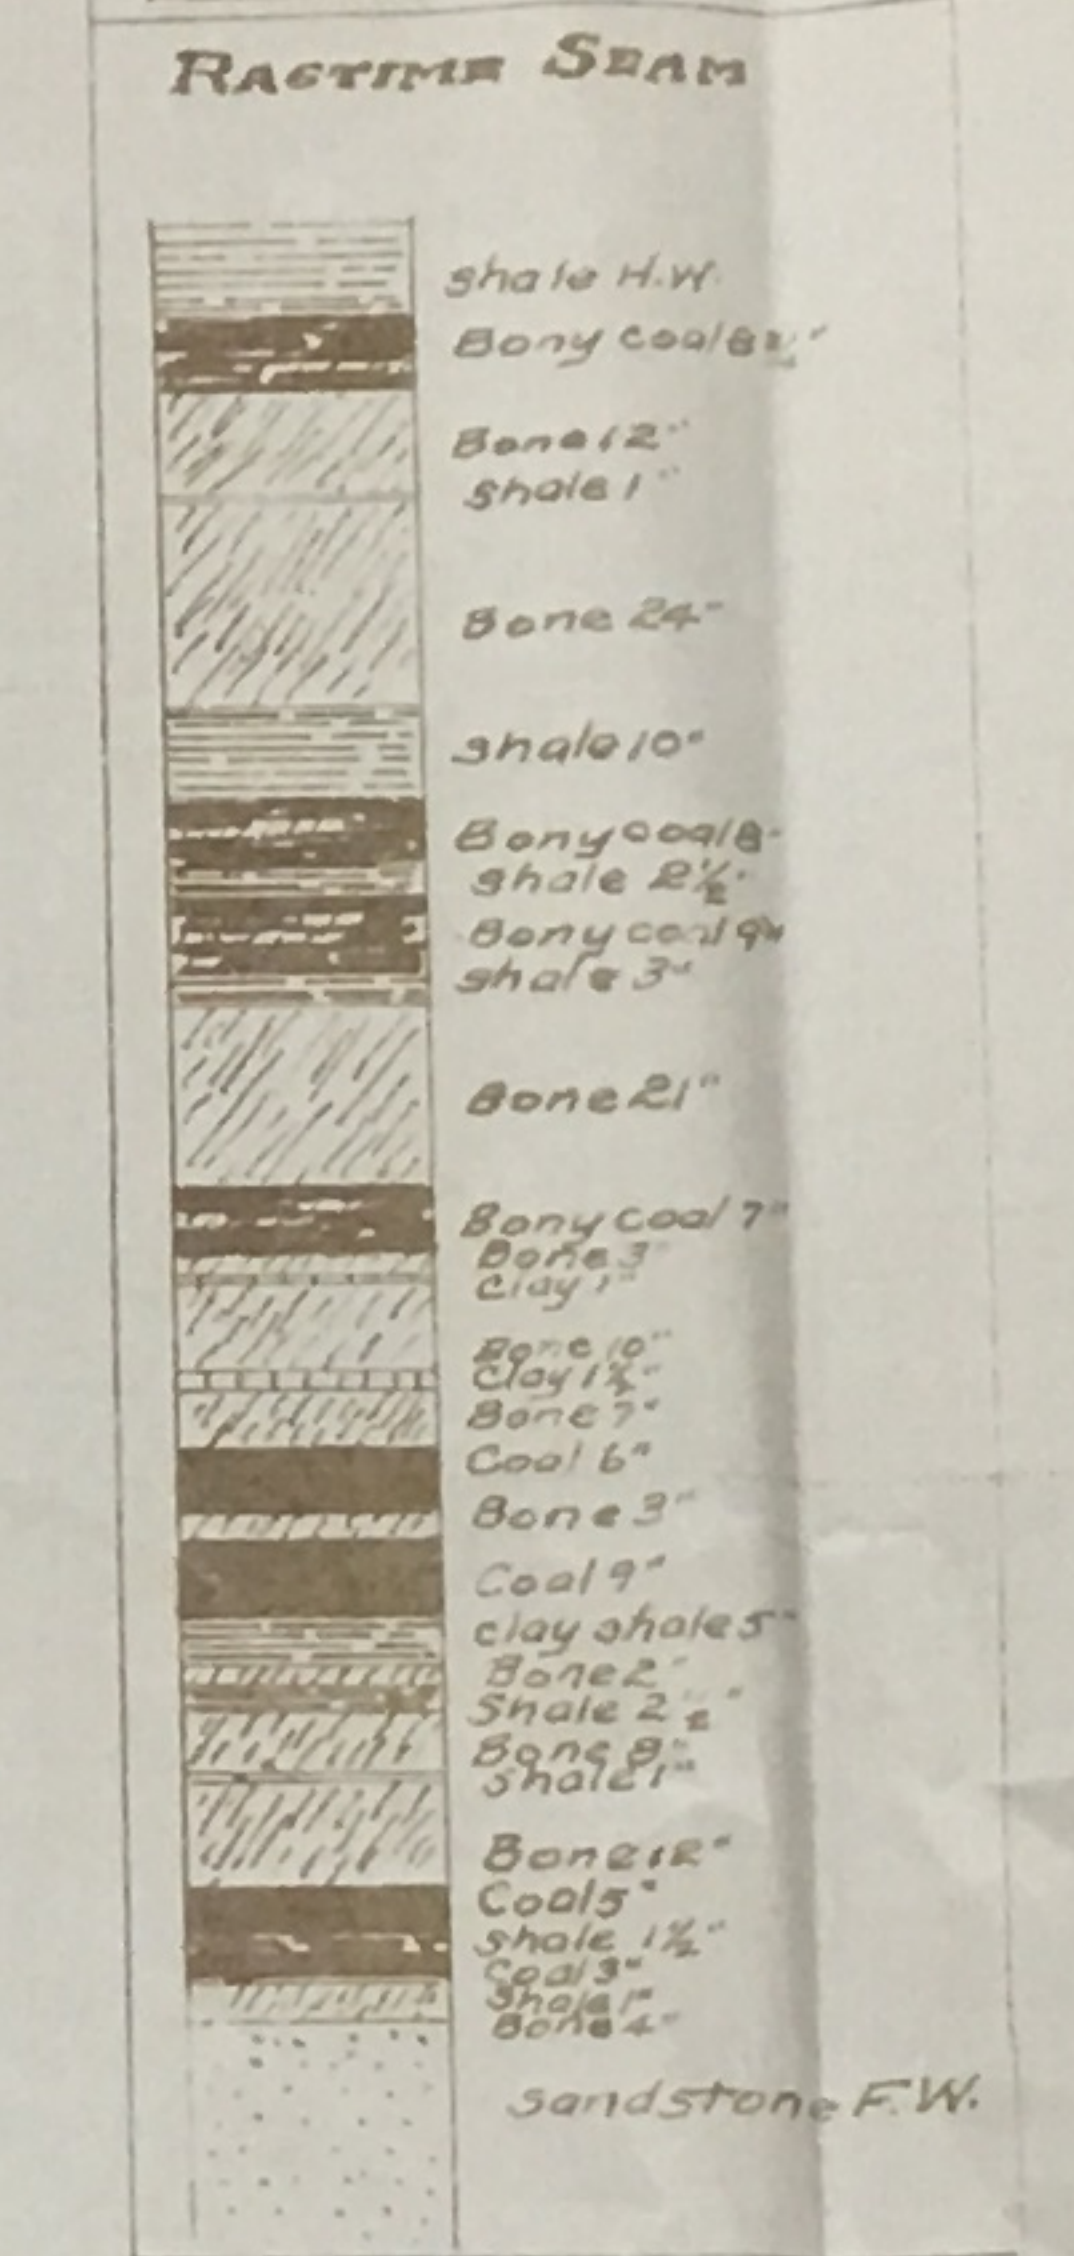 RAGTIME SEAM
shale H.W.
Bony coal 8½"
Bone 12"
shale 1"
Bone 24"
shale 10"
Bony coal 8"
shale 2½"
Bony coal 9"
shale 3"
Bone 21"
Bony coal 7"
Bone 3"
clay 1"
Bone 10"
Clay 1½"
Bone 7"
Coal 6"
Bone 3"
Coal 9"
clay shale 5"
Bone 2"
Shale 2½"
Bone 8"
shale 1"
Bone 12"
Coal 5"
shale 1½"
Coal 3"
Shale 1"
Bone 4"
sandstone F.W.